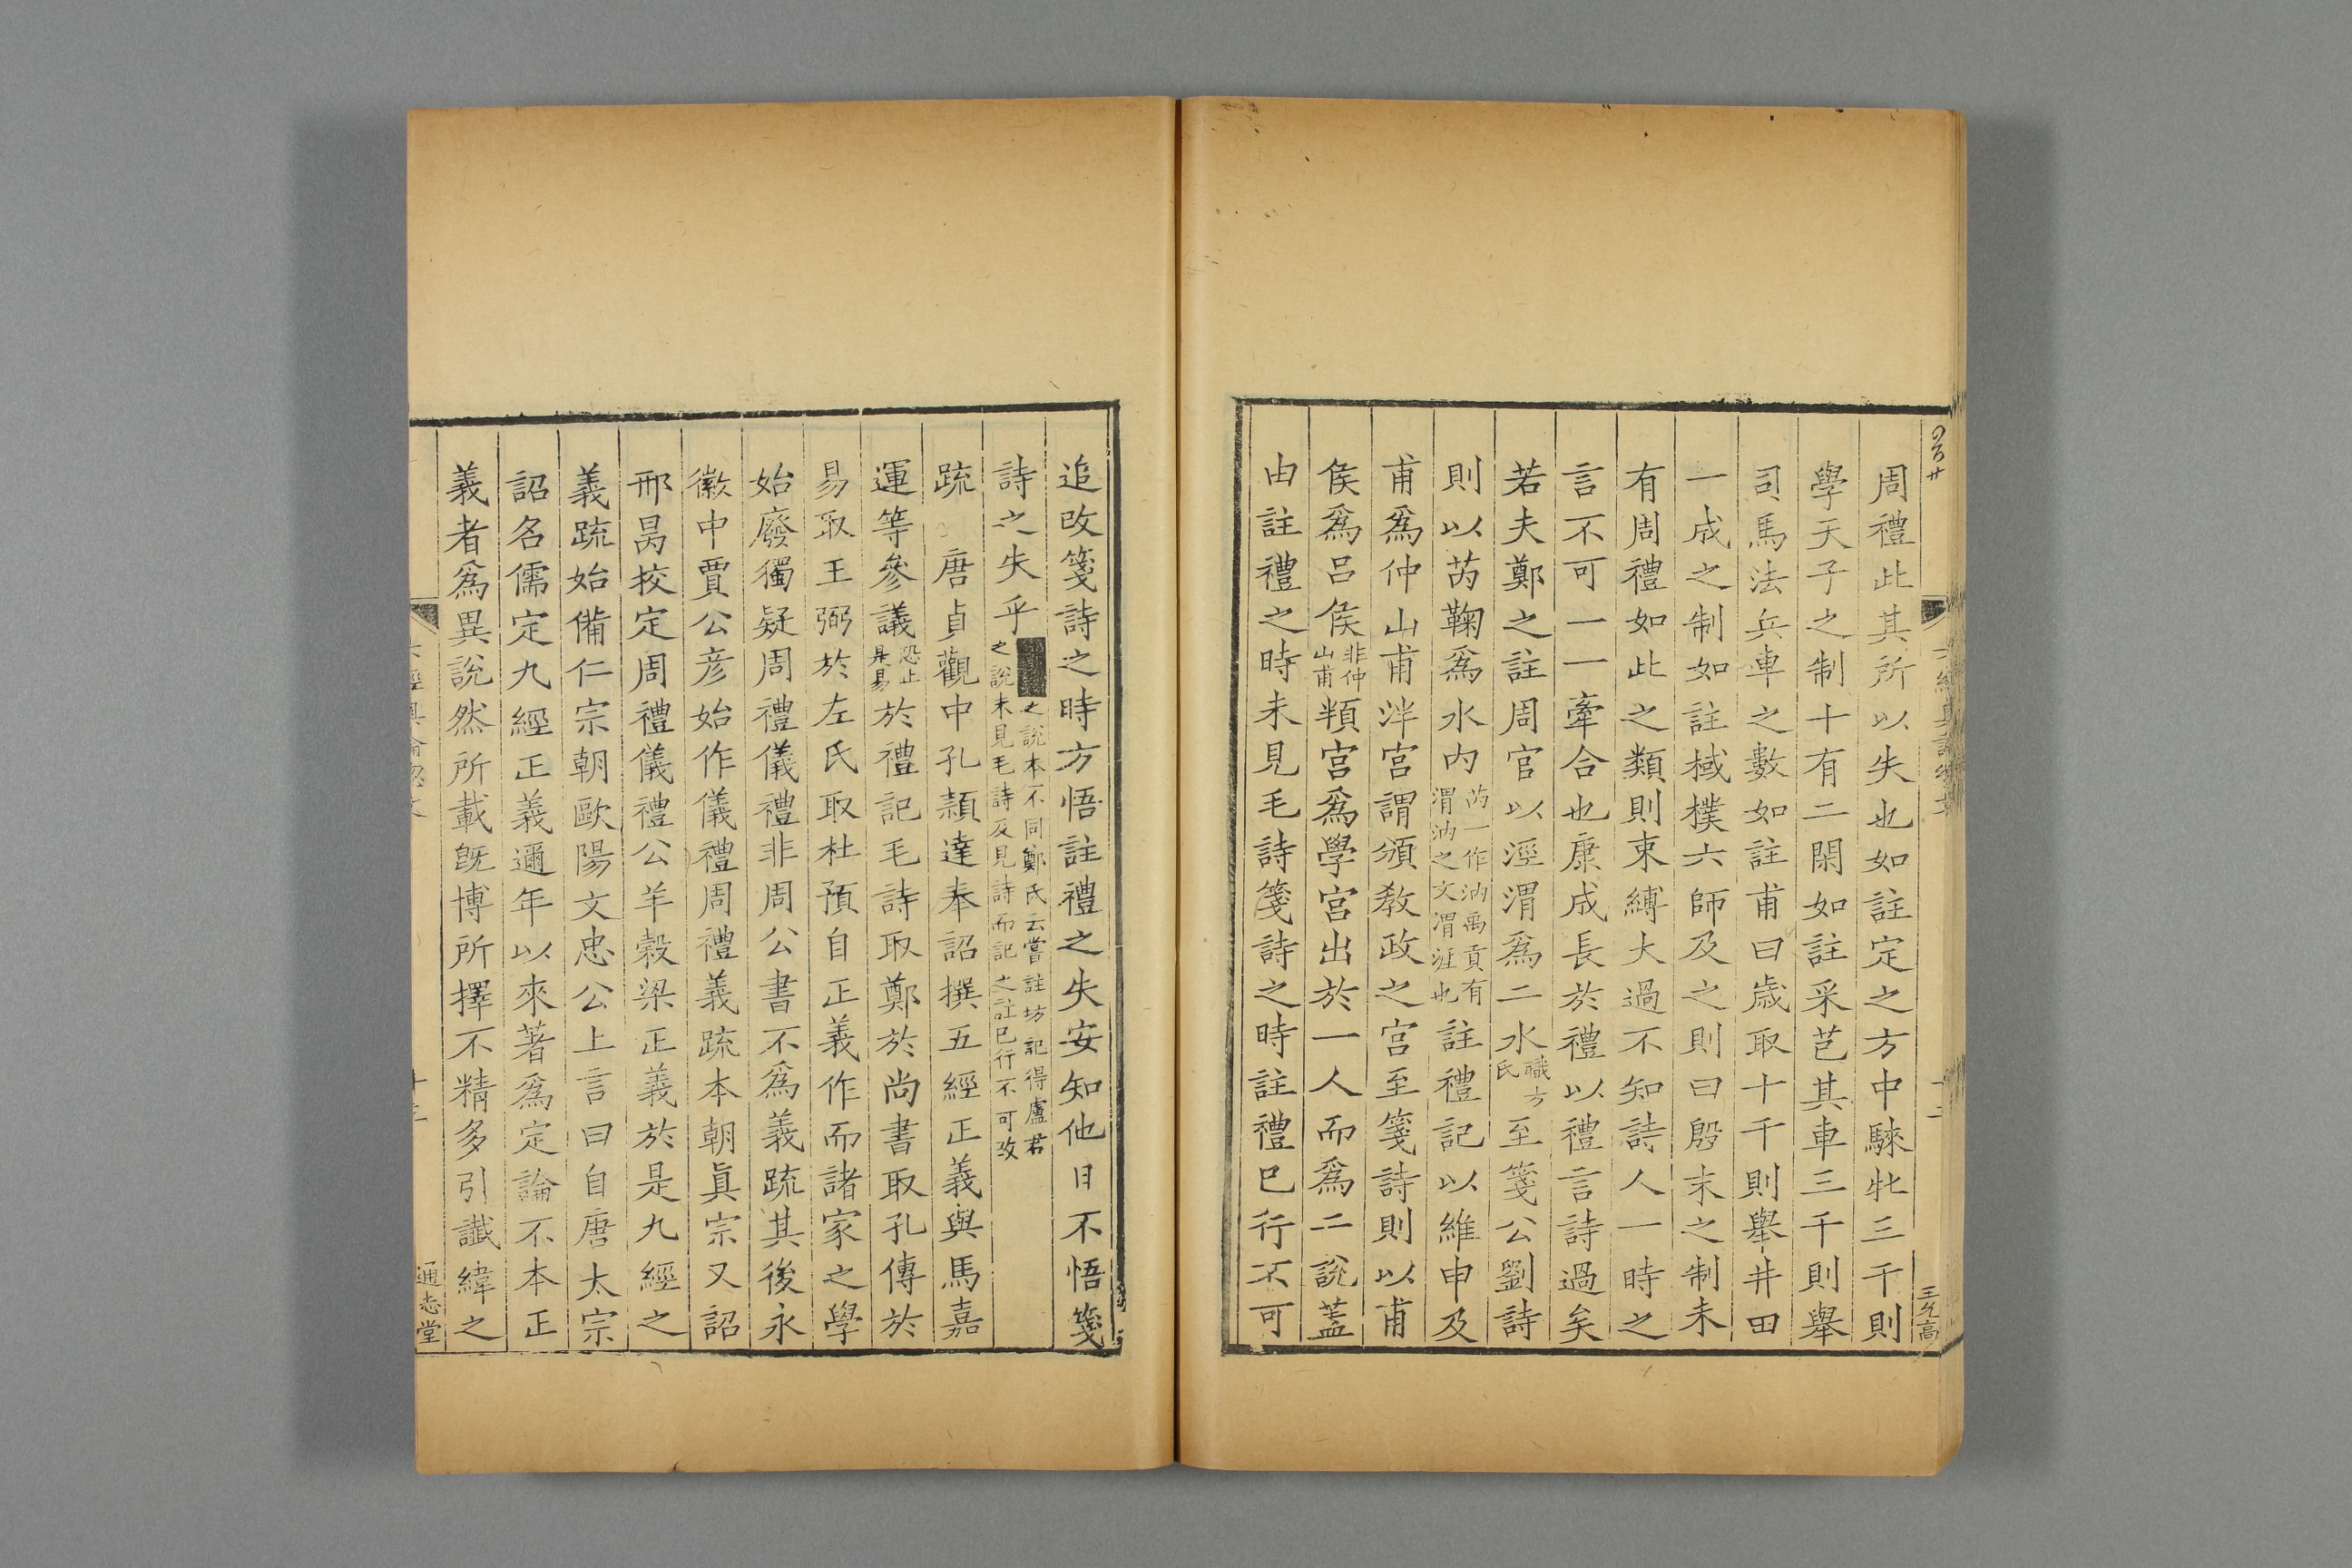 周禮此其所以失也如註定之方中騋牝三千則
學天子之制十有二閑如註采芑其車三千則舉
司馬法兵車之數如註甫曰歲取十千則舉井田
一成之制如註棫樸六師及之則曰殷末之制未
有周禮如此之類則束縛太過不知詩人一時之
言不可一一牽合也康成長於禮以禮言詩過矣
若夫鄭之註周官以涇渭爲二水職方氏至箋公劉詩
則以芮鞫爲水內芮一作汭禹貢有渭汭之文渭涯也註禮記以維申及
甫爲仲山甫泮宮謂頒教政之宮至箋詩則以甫
侯爲呂侯非仲山甫頖宮爲學宮出於一人而爲二說蓋
由註禮之時未見毛詩箋詩之時註禮已行不可
王允高
追改箋詩之時方悟註禮之失安知他日不悟箋
詩之失乎之說本不同鄭氏云嘗註坊記得盧君之說未見毛詩及見詩而記之註已行不可改
疏 唐貞觀中孔穎達奉詔撰五經正義與馬嘉
運等參議恐止是易於禮記毛詩取鄭於尚書取孔傳於
易取王弼於左氏取杜預自正義作而諸家之學
始廢獨疑周禮儀禮非周公書不爲義疏其後永
徽中賈公彦始作儀禮周禮義疏本朝眞宗又詔
邢昺挍定周禮儀禮公羊穀梁正義於是九經之
義疏始備仁宗朝歐陽文忠公上言曰自唐太宗
詔名儒定九經正義邇年以來著爲定論不本正
義者爲異說然所載旣博所擇不精多引讖緯之
通志堂